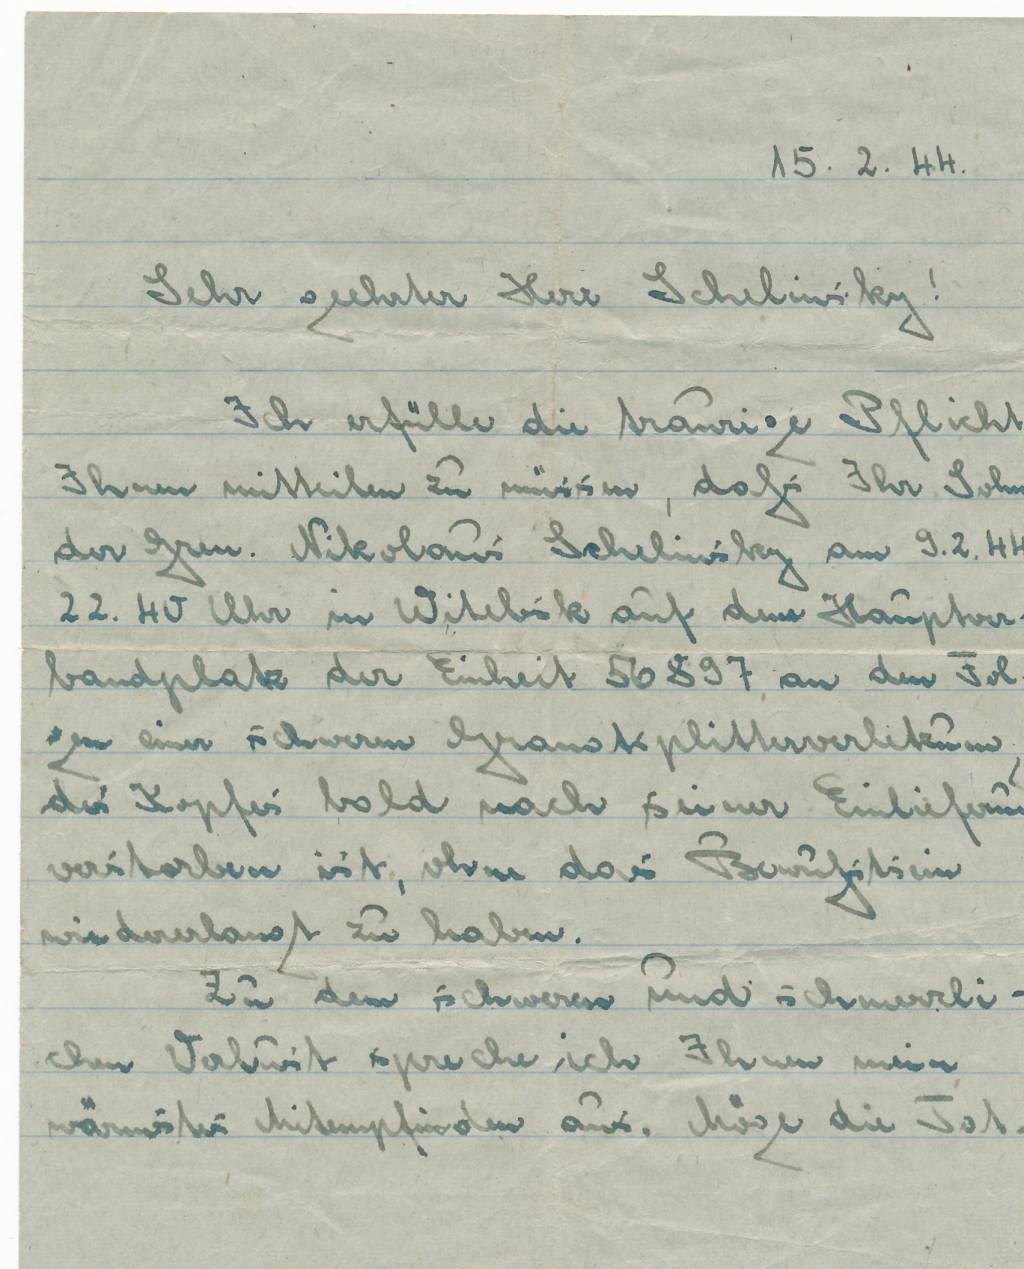 15. 2. 44.
Sehr geehrter Herr Schelinsky!
Ich erfülle die traurige Pflicht
Ihnen mitteilen zu müssen, daß Ihr Sohn
der Gren. Nikolaus Schelinsky am 9.2.44
22.40 Uhr in Witebsk auf dem Hauptver-
bandplatz der Einheit 56897 an den Fol-
gen einer schweren Granatsplitterverletzun
des Kopfes bald nach seiner Einlieferun
verstorben ist, ohne das Bewußtsein
wiedererlangt zu haben.
Zu dem schweren und schmerzli-
chen Verlust spreche ich Ihnen mein
wärmstes Mitempfinden aus. Möge die Tat-